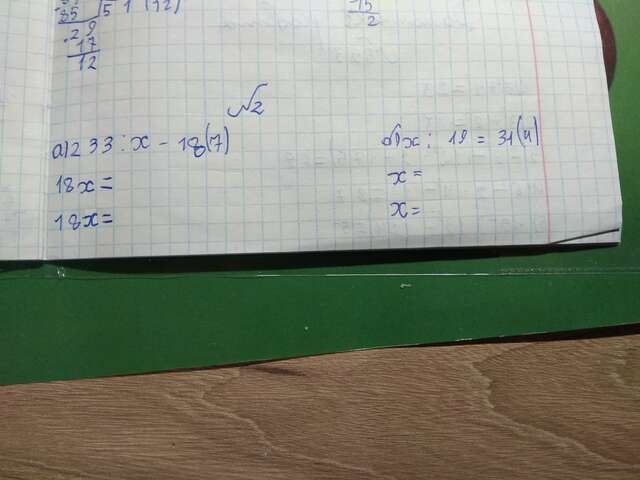 35 5 1 (12)
29
17
12
15
2
√2
а) 233 : x - 18(7)
18x =
18x =
б) x : 19 = 31(4)
x =
x =